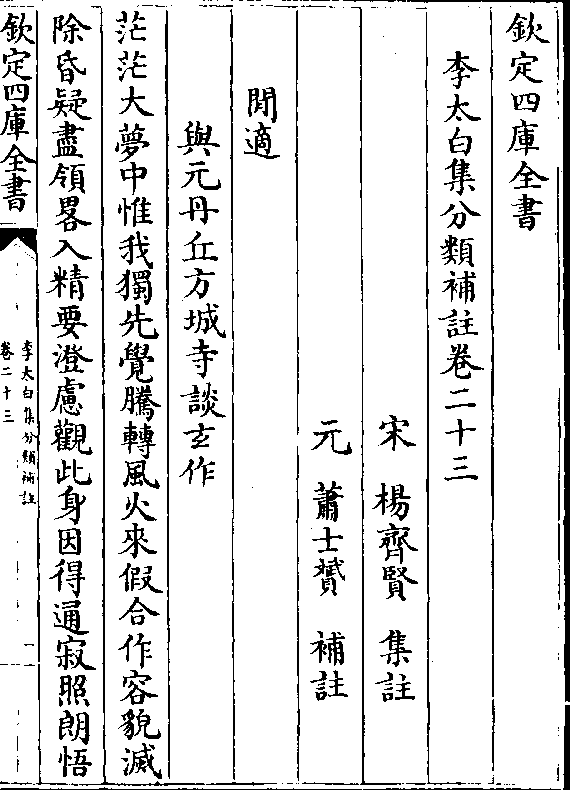 欽定四庫全書
李太白集分類補註卷二十三
宋 楊齊賢 集註
元 蕭士贇 補註
閒適
與元丹丘方城寺談玄作
茫茫大夢中惟我獨先覺騰轉風火來假合作容貌滅
除昏疑盡領畧入精要澄慮觀此身因得通寂照朗悟
欽定四庫全書
李太白集分類補註
卷二十三
一